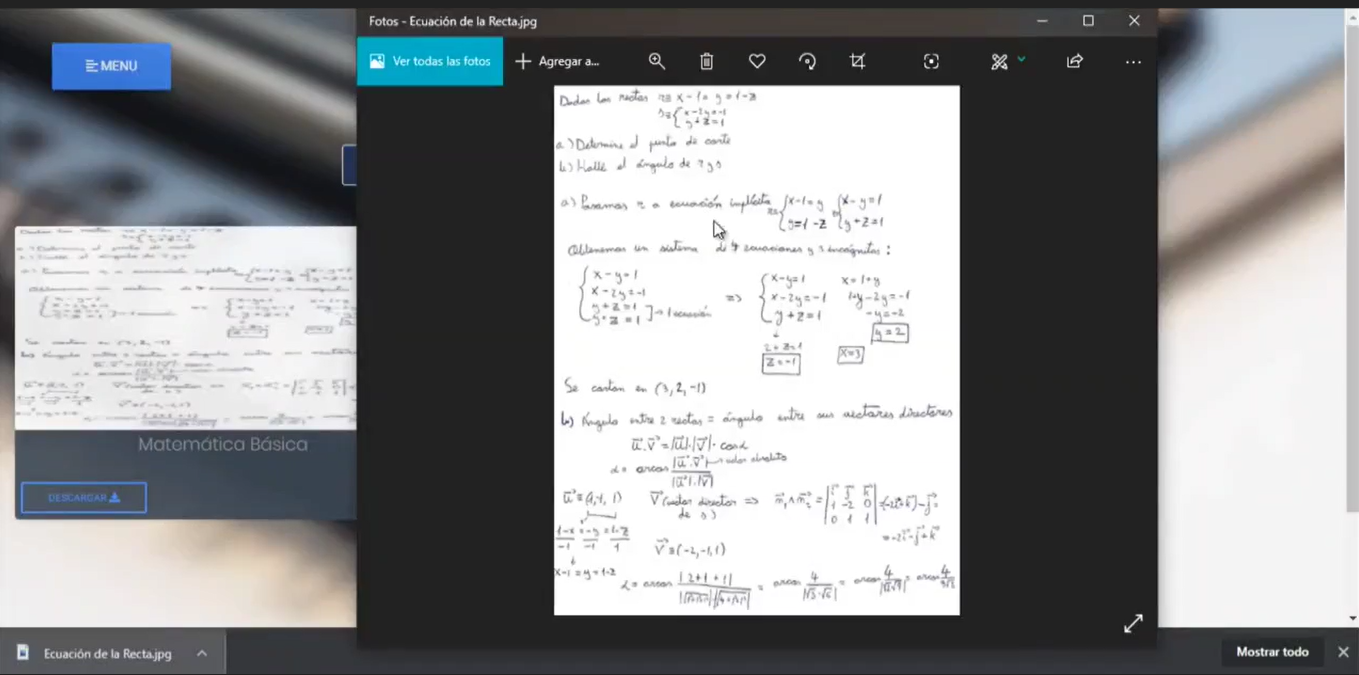 Fotos - Ecuación de la Recta.jpg
MENU
Ver todas las fotos
Agregar a...
Dadas las rectas r≡ x-1 = y = 1-z
s≡ { x-2y=-1
y+z=1
a) Determine el punto de corte
b) Halle el ángulo de r y s
a) Pasamos r a ecuación implícita r≡ { x-1=y { x-y=1
y=1-z y+z=1
Obtenemos un sistema de 4 ecuaciones y 3 incógnitas:
x-y=1 x-y=1 x=1+y
x-2y=-1 => x-2y=-1 1+y-2y=-1
y+z=1 y+z=1 -y=-2
y+z=1 ] → 1 ecuación y=2
2+z=1
z=-1 x=3
Se cortan en (3,2,-1)
b) Ángulo entre 2 rectas = ángulo entre sus vectores directores
u⃗·v⃗=|u⃗|·|v⃗|·cosα
α = arcos |u⃗·v⃗| → valor absoluto
|u⃗|·|v⃗|
v⃗ (vector director => n⃗₁∧n⃗₂ = | i⃗ j⃗ k⃗
de s) 1 -2 0
0 1 1 |
= -2i⃗-j⃗+k⃗
v⃗≡(-2,-1,1)
x-1=y=1-z
α = arcos |2+1+1| = arcos 4 = arcos 4 = arcos 4
|√3·√6|
Matemática Básica
DESCARGAR
Ecuación de la Recta.jpg
Mostrar todo